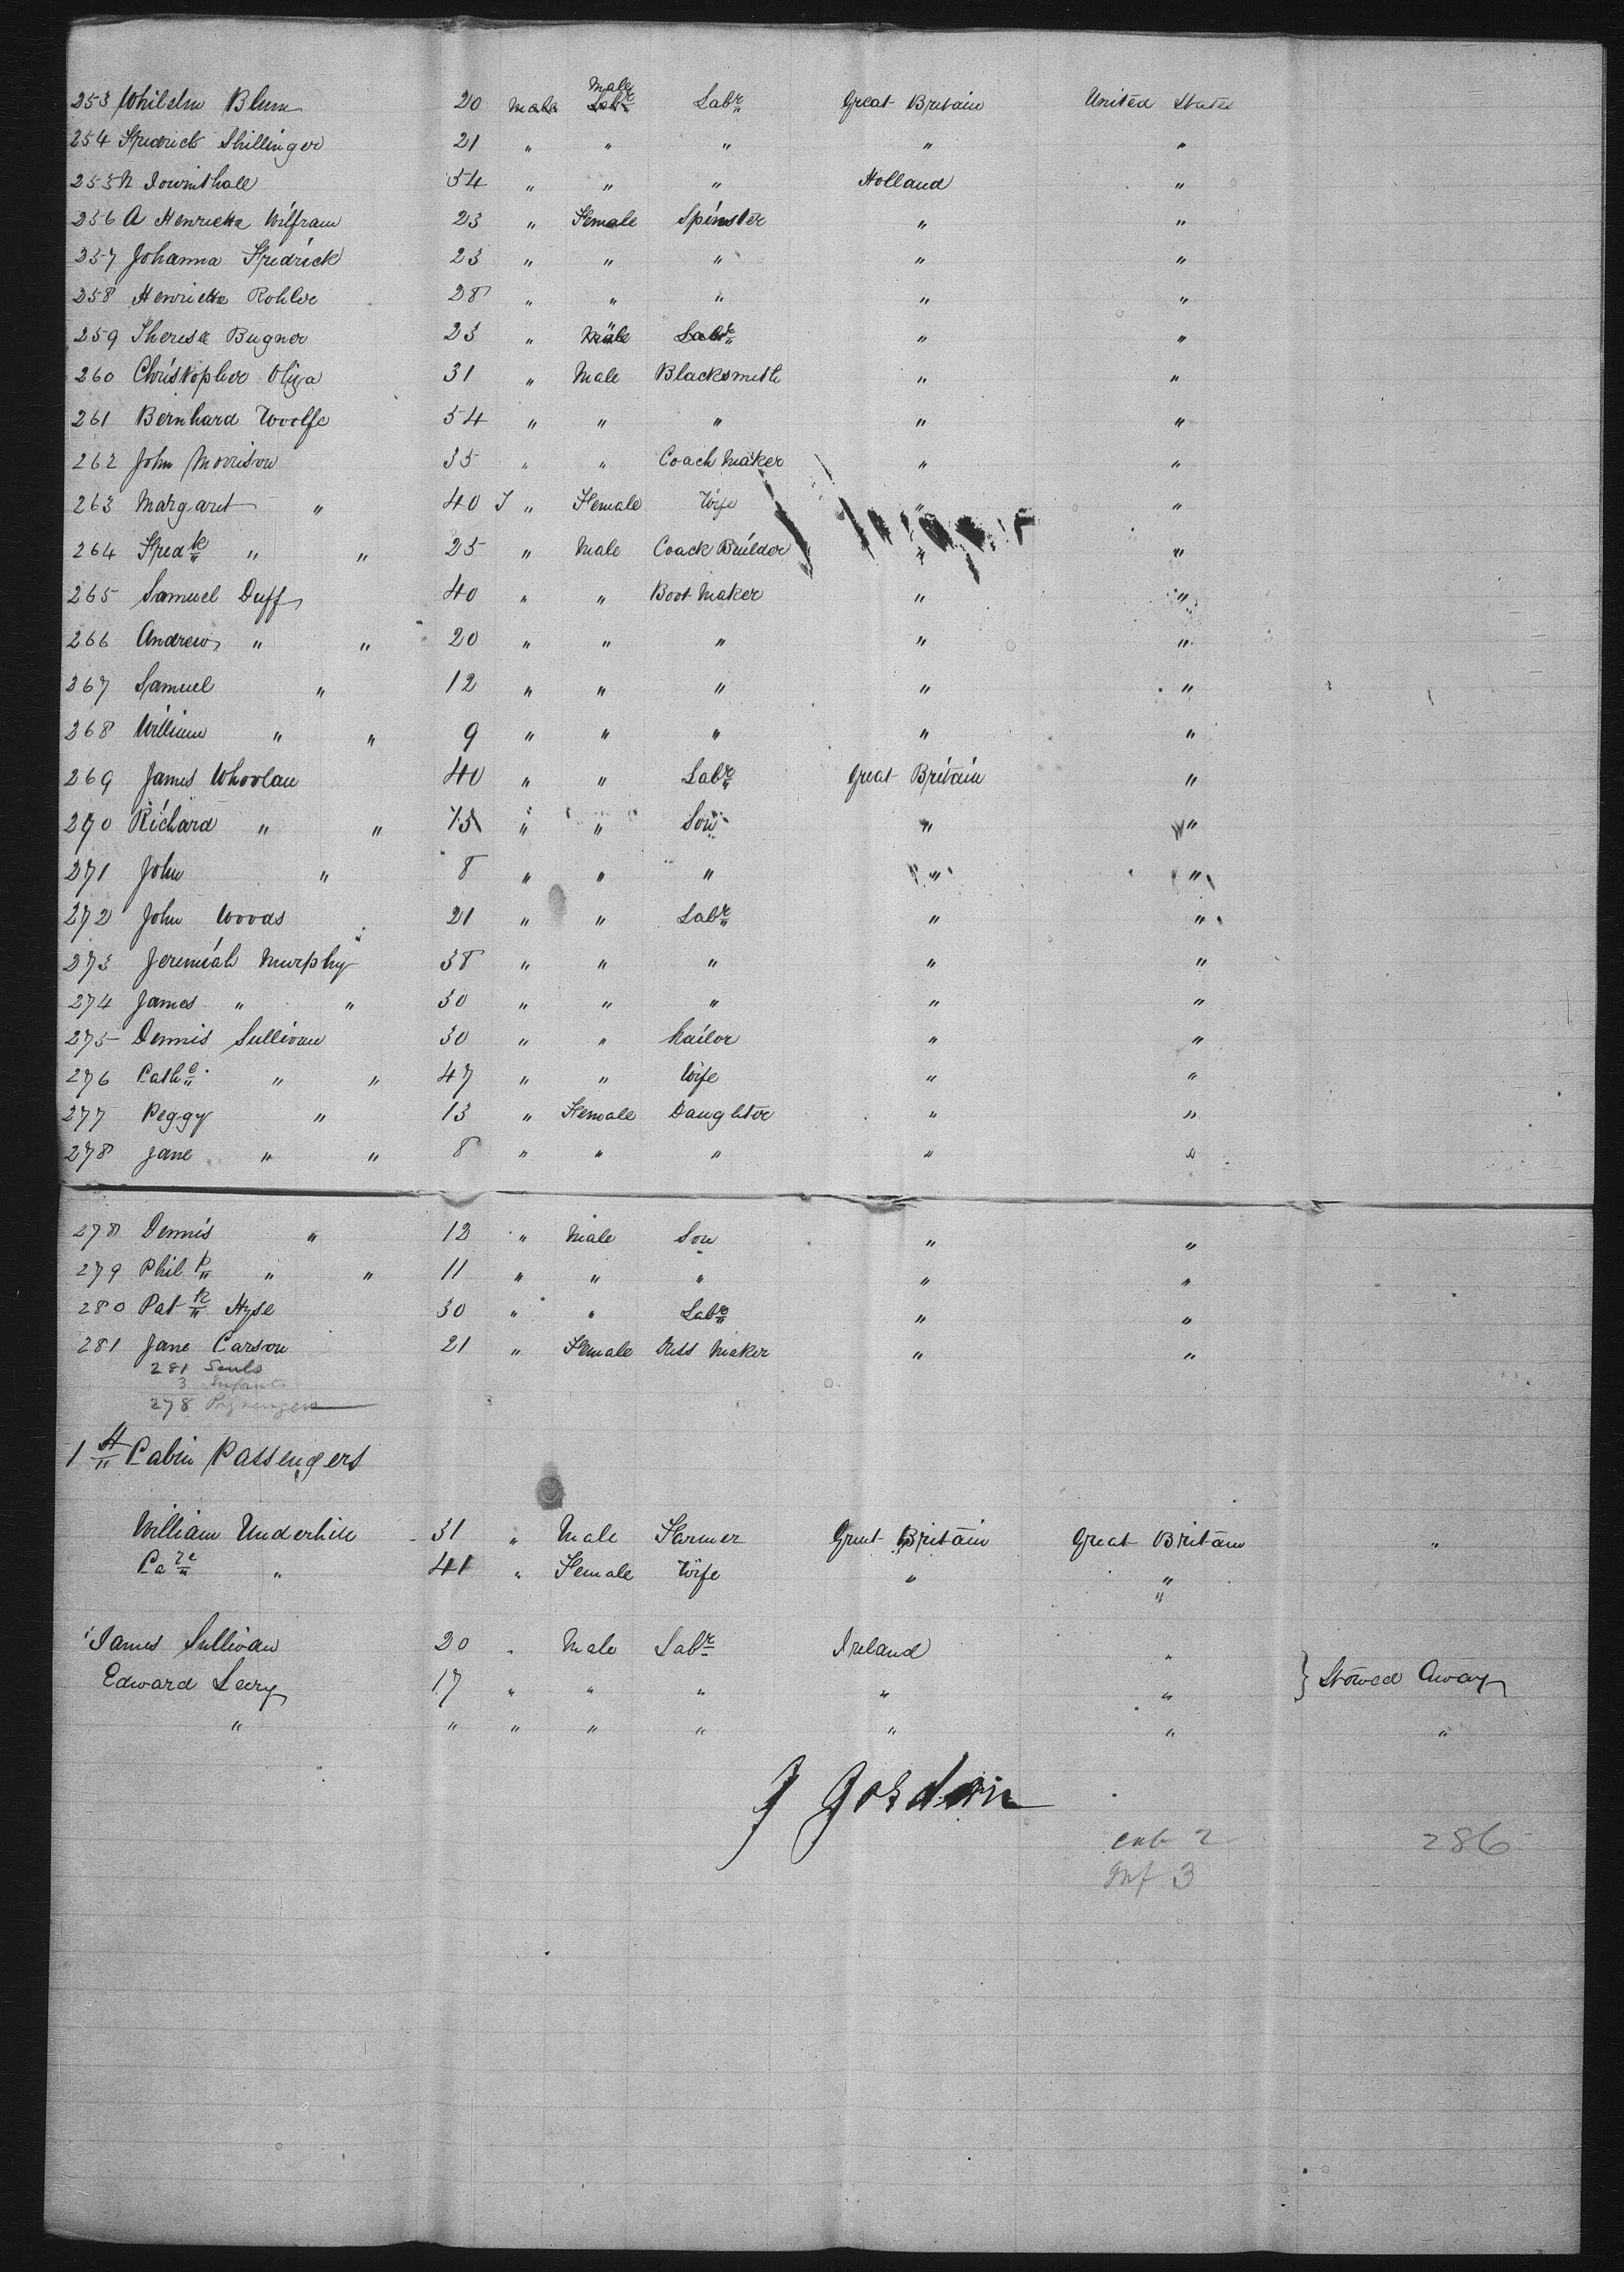 253 Whilelm Blum 20 Male Male Labr Labr Great Britain United States
254 Fredrick Shillinger 21 " " " " "
255 N 54 " " " Holland "
256 A Henrietta Wilfram 23 " Female Spinster " "
257 Johanna Fredrick 23 " " " " "
258 Henrietta Rohler 28 " " " " "
259 Theresa Bugner 23 " Male Labr " "
260 Christopher Oliza 31 " Male Blacksmith " "
261 Bernhard Woolfe 54 " " " " "
262 John Morrison 35 " " Coach Maker " "
263 Margaret " 40 " Female Wife " "
264 Fredk " " 25 " Male Coach Builder " "
265 Samuel Duff 40 " " Boot Maker " "
266 Andrew " " 20 " " " " "
267 Samuel " 12 " " " " "
268 William " " 9 " " " " "
269 James Whoolan 40 " " Labr Great Britain "
270 Richard " " 13 " " Son " "
271 John " 8 " " " " "
272 John Woods 21 " " Labr " "
273 Jeremiah Murphy 38 " " " " "
274 James " " 30 " " " " "
275 Dennis Sullivan 30 " " " "
276 Cathe " " 47 " " Wife " "
277 Peggy " 13 " Female Daughter " "
278 Jane " " 8 " " " " "
278 Dennis " 12 " Male Son " "
279 Philp " " 11 " " " " "
280 Patk Hyse 30 " " Labr " "
281 Jane Carson 21 " Female Dress Maker " "
281 Souls
3 Infants
278 Passengers
1st Cabin Passengers
William Underhill 31 " Male Farmer Great Britain Great Britain "
" 41 " Female Wife " "
"
James Sullivan 20 " Male Labr Ireland "
Edward Leery 17 " " " " " } Stowed Away
" " " " " " " "
J Gordon
cab 2 286
Inf 3